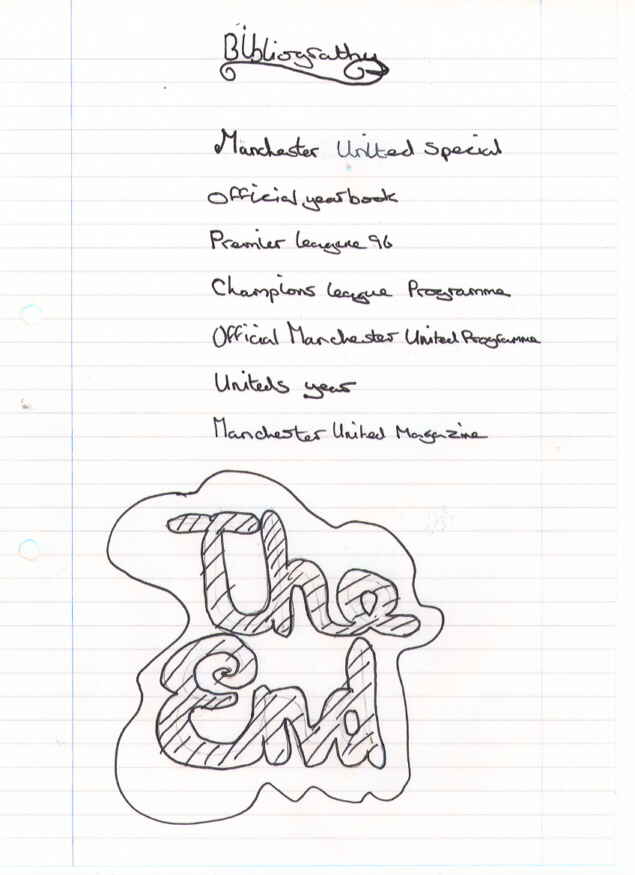 Bibliograthy
Manchester United Special
Official yearbook
Premier league 96
Champions league Programme
Official Manchester United Programme
Uniteds year
Manchester United Magazine
The
End